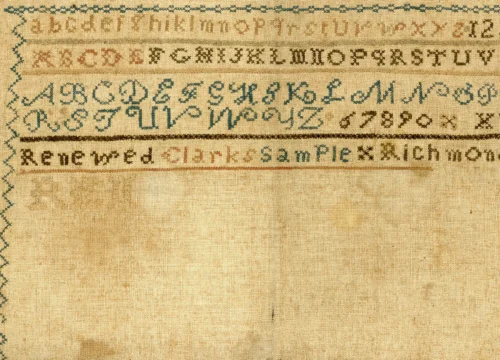 abcdefghiklmnopqrstuvwxyz12
ABCDEFGHIJKLMNOPQRSTUV
ABCDEFGHIKLMNOP
RSTUVWYZ 67890 x x
Renewed Clarks SamPle x Richmon